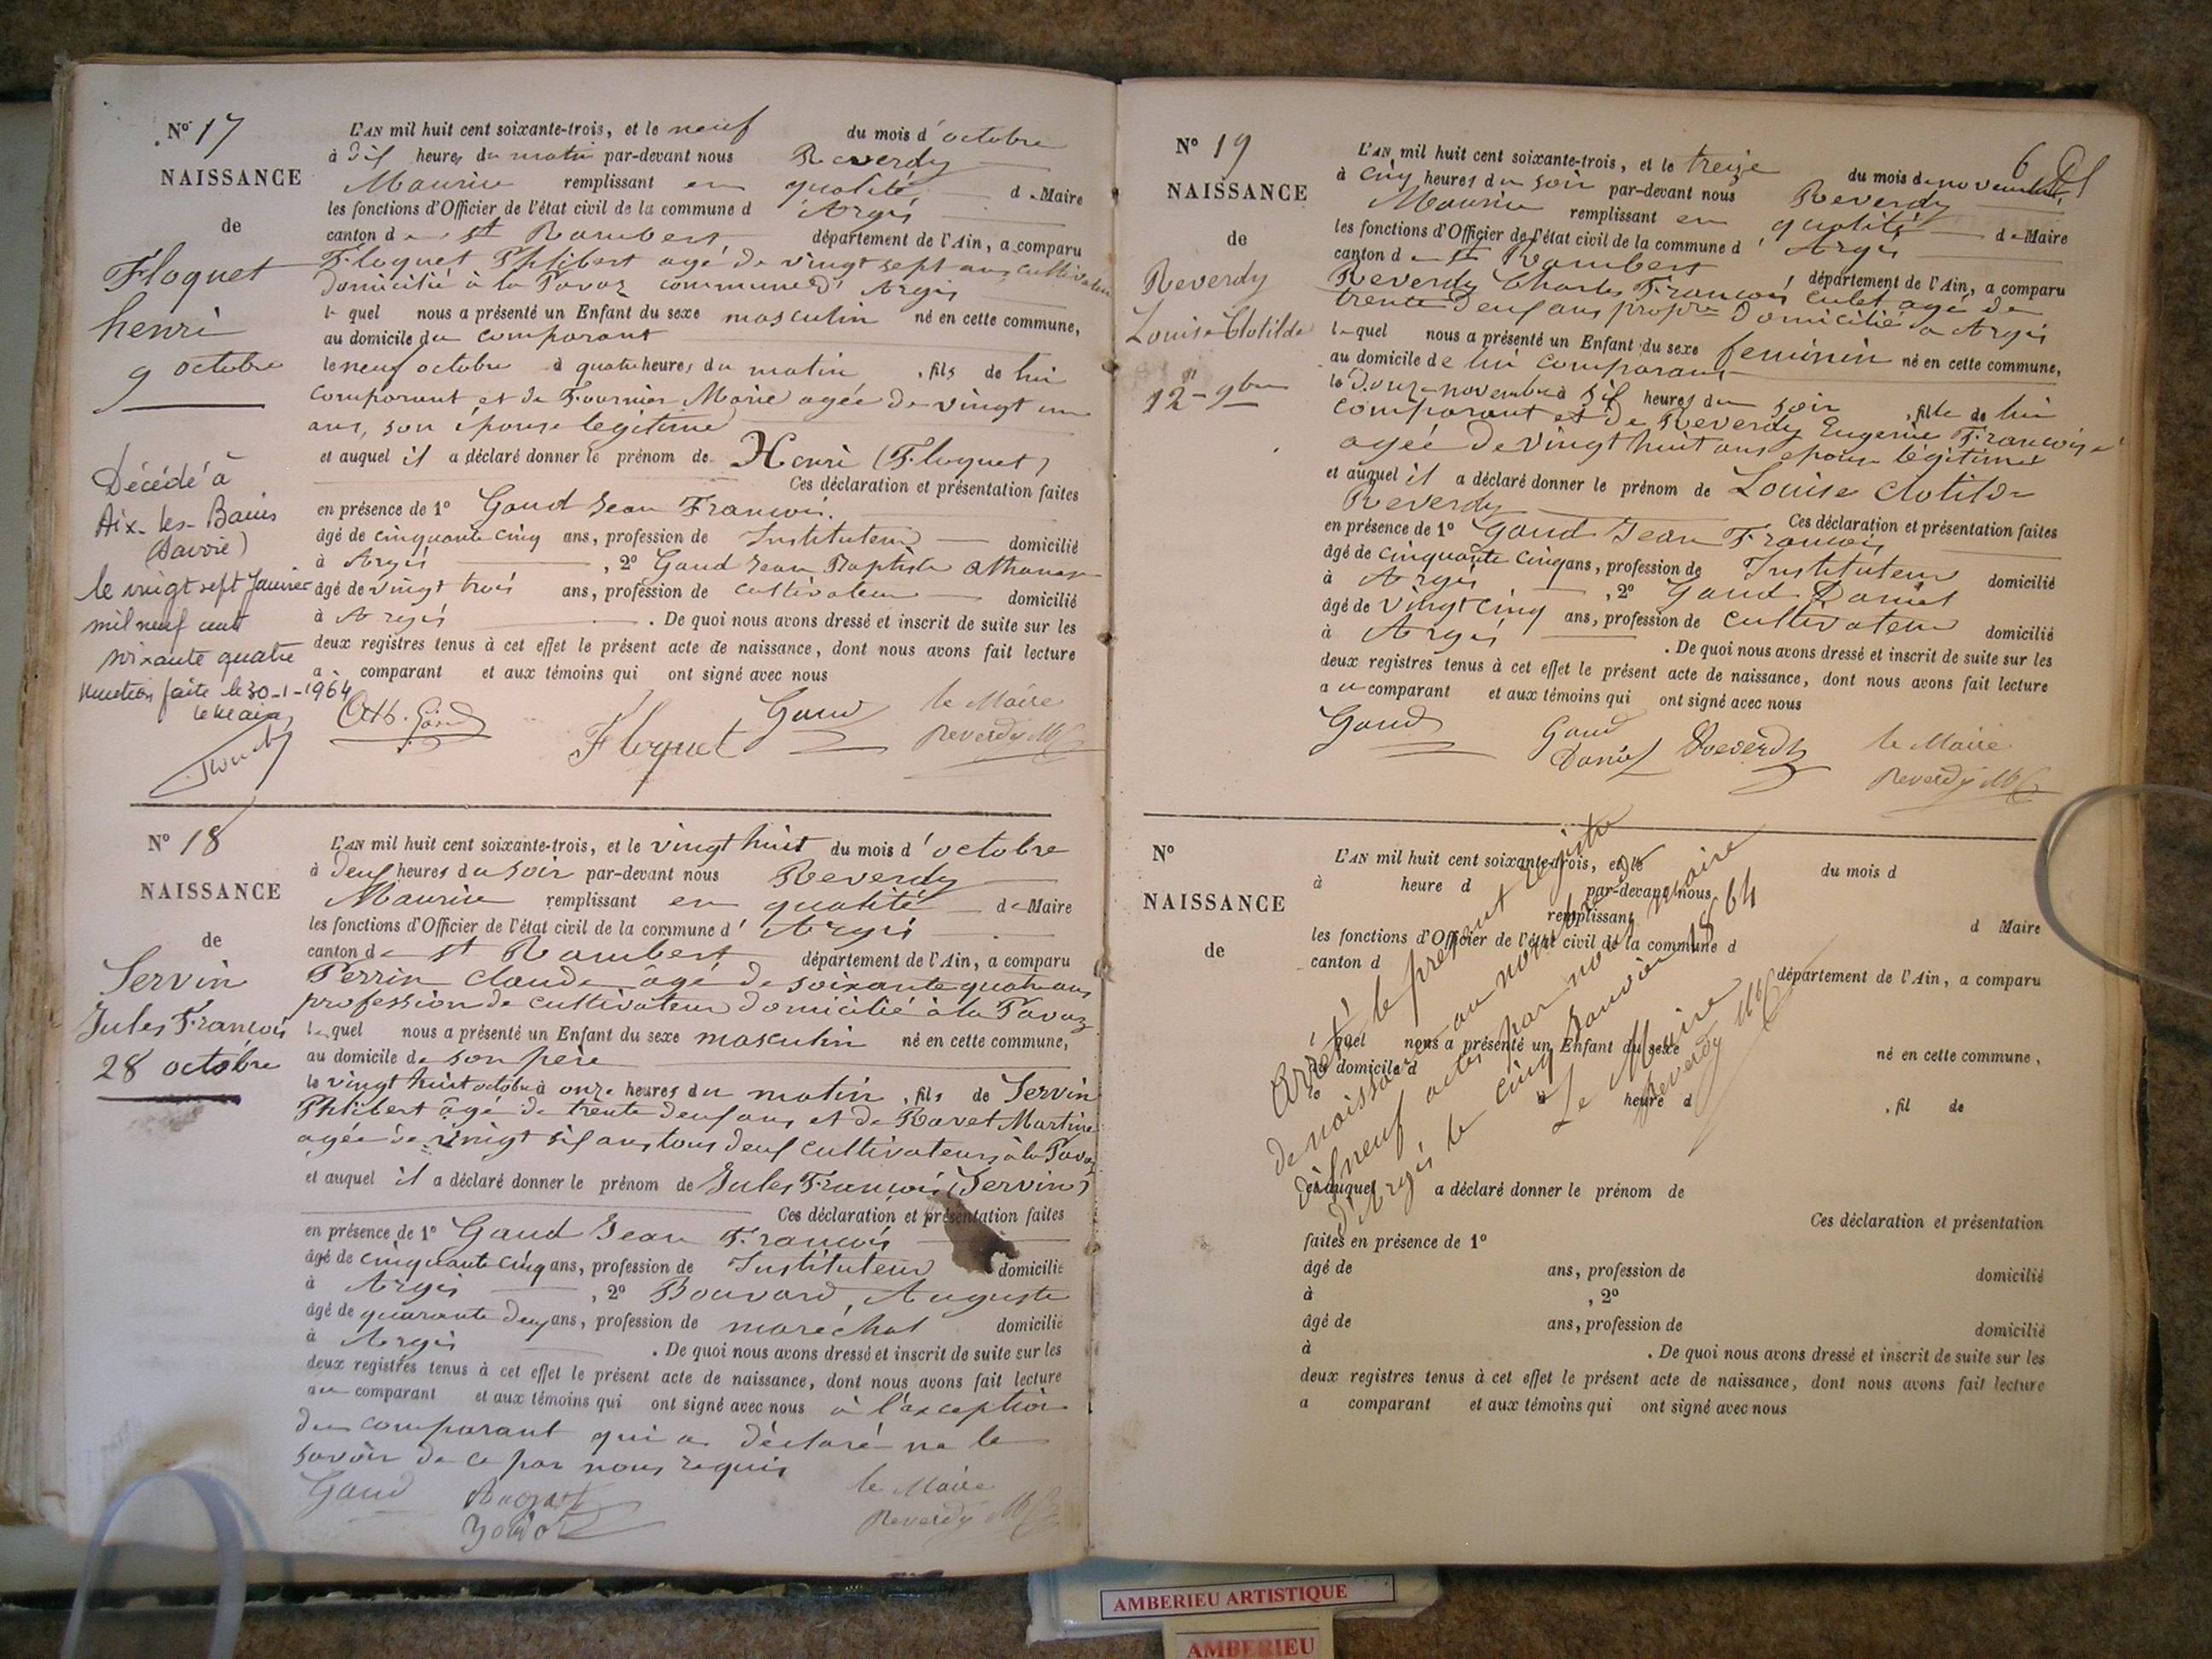 N° 17
NAISSANCE
de
Floquet
henri
9 octobre
Décédé à
Aix-les-Bains
(Savoie)
le vingt sept Janvier
mil neuf cent
soixante quatre
mention faite le 30-1-1964
le Maire
L'AN mil huit cent soixante-trois, et le neuf du mois d'octobre
à dix heures du matin par-devant nous Reverdy
Maurice remplissant en qualité de Maire
les fonctions d'Officier de l'état civil de la commune d'Argis
canton de St Rambert département de l'Ain, a comparu
Floquet Philibert agé de vingt sept ans cultivateur
domicilié à la Pavaz commune d'Argis
lequel nous a présenté un Enfant du sexe masculin né en cette commune,
au domicile du comparant
le neuf octobre à quatre heures du matin, fils de lui
comparant et de Fournier Marie agée de vingt un
ans, son épouse légitime
et auquel il a déclaré donner le prénom de Henri (Floquet)
Ces déclaration et présentation faites
en présence de 1° Gaud Jean François
âgé de cinquante cinq ans, profession de Instituteur domicilié
à Argis, 2° Gaud Jean Baptiste Athanase
âgé de vingt trois ans, profession de cultivateur domicilié
à Argis. De quoi nous avons dressé et inscrit de suite sur les
deux registres tenus à cet effet le présent acte de naissance, dont nous avons fait lecture
a comparant et aux témoins qui ont signé avec nous
Ath. Gaud Floquet Gaud le Maire
Reverdy
N° 18
NAISSANCE
de
Servin
Jules François
28 octobre
L'AN mil huit cent soixante-trois, et le vingt huit du mois d'octobre
à deux heures du soir par-devant nous Reverdy
Maurice remplissant en qualité de Maire
les fonctions d'Officier de l'état civil de la commune d'Argis
canton de St Rambert département de l'Ain, a comparu
Perrin Claude âgé de soixante quatre ans
profession de cultivateur domicilié à la Pavaz
lequel nous a présenté un Enfant du sexe masculin né en cette commune,
au domicile de son père
le vingt huit octobre à onze heures du matin, fils de Servin
Philibert âgé de trente deux ans et de Ravet Martine
agée de vingt six ans tous deux cultivateurs à la Pavaz
et auquel il a déclaré donner le prénom de Jules François (Servin)
Ces déclaration et présentation faites
en présence de 1° Gaud Jean François
âgé de cinquante cinq ans, profession de Instituteur domicilié
à Argis, 2° Bouvard, Auguste
âgé de quarante deux ans, profession de maréchal domicilié
à Argis. De quoi nous avons dressé et inscrit de suite sur les
deux registres tenus à cet effet le présent acte de naissance, dont nous avons fait lecture
au comparant et aux témoins qui ont signé avec nous à l'exception
du comparant qui a déclaré ne le
savoir de ce par nous requis
Gaud le Maire
Reverdy
N° 19
NAISSANCE
de
Reverdy
Louise Clotilde
12 - 9bre
6
L'AN mil huit cent soixante-trois, et le treize du mois de novembre
à cinq heures du soir par-devant nous Reverdy
Maurice remplissant en qualité de Maire
les fonctions d'Officier de l'état civil de la commune d'Argis
canton de St Rambert, département de l'Ain, a comparu
Reverdy Charles François culet agé de
trente deux ans propre domicilié a Argis
lequel nous a présenté un Enfant du sexe feminin né en cette commune,
au domicile de lui comparant
le douze novembre à six heures du soir, fille de lui
comparant et de Reverdy Eugenie Françoise
agée de vingt huit ans epouse légitime
et auquel il a déclaré donner le prénom de Louise Clotilde
Reverdy Ces déclaration et présentation faites
en présence de 1° Gaud Jean François
âgé de cinquante cinq ans, profession de Instituteur domicilié
à Argis, 2° Gaud Daniel
âgé de vingt cinq ans, profession de cultivateur domicilié
à Argis. De quoi nous avons dressé et inscrit de suite sur les
deux registres tenus à cet effet le présent acte de naissance, dont nous avons fait lecture
au comparant et aux témoins qui ont signé avec nous
Gaud Gaud Daniel Reverdy le Maire
Reverdy
N°
NAISSANCE
de
L'AN mil huit cent soixante-trois, et le du mois d
à heure d par-devant nous
remplissant d Maire
les fonctions d'Officier de l'état civil de la commune d
canton d département de l'Ain, a comparu
l quel nous a présenté un Enfant du sexe né en cette commune,
au domicile d
le à heure d, fil de
et auquel a déclaré donner le prénom de
Ces déclaration et présentation
faites en présence de 1°
âgé de ans, profession de domicilié
à, 2°
âgé de ans, profession de domicilié
à. De quoi nous avons dressé et inscrit de suite sur les
deux registres tenus à cet effet le présent acte de naissance, dont nous avons fait lecture
a comparant et aux témoins qui ont signé avec nous
Arrêté le présent registre
de naissance au nombre de
dix neuf actes par nous maire
d'Argis le cinq Janvier 1864
Le Maire
Reverdy
AMBERIEU ARTISTIQUE
AMBERIEU